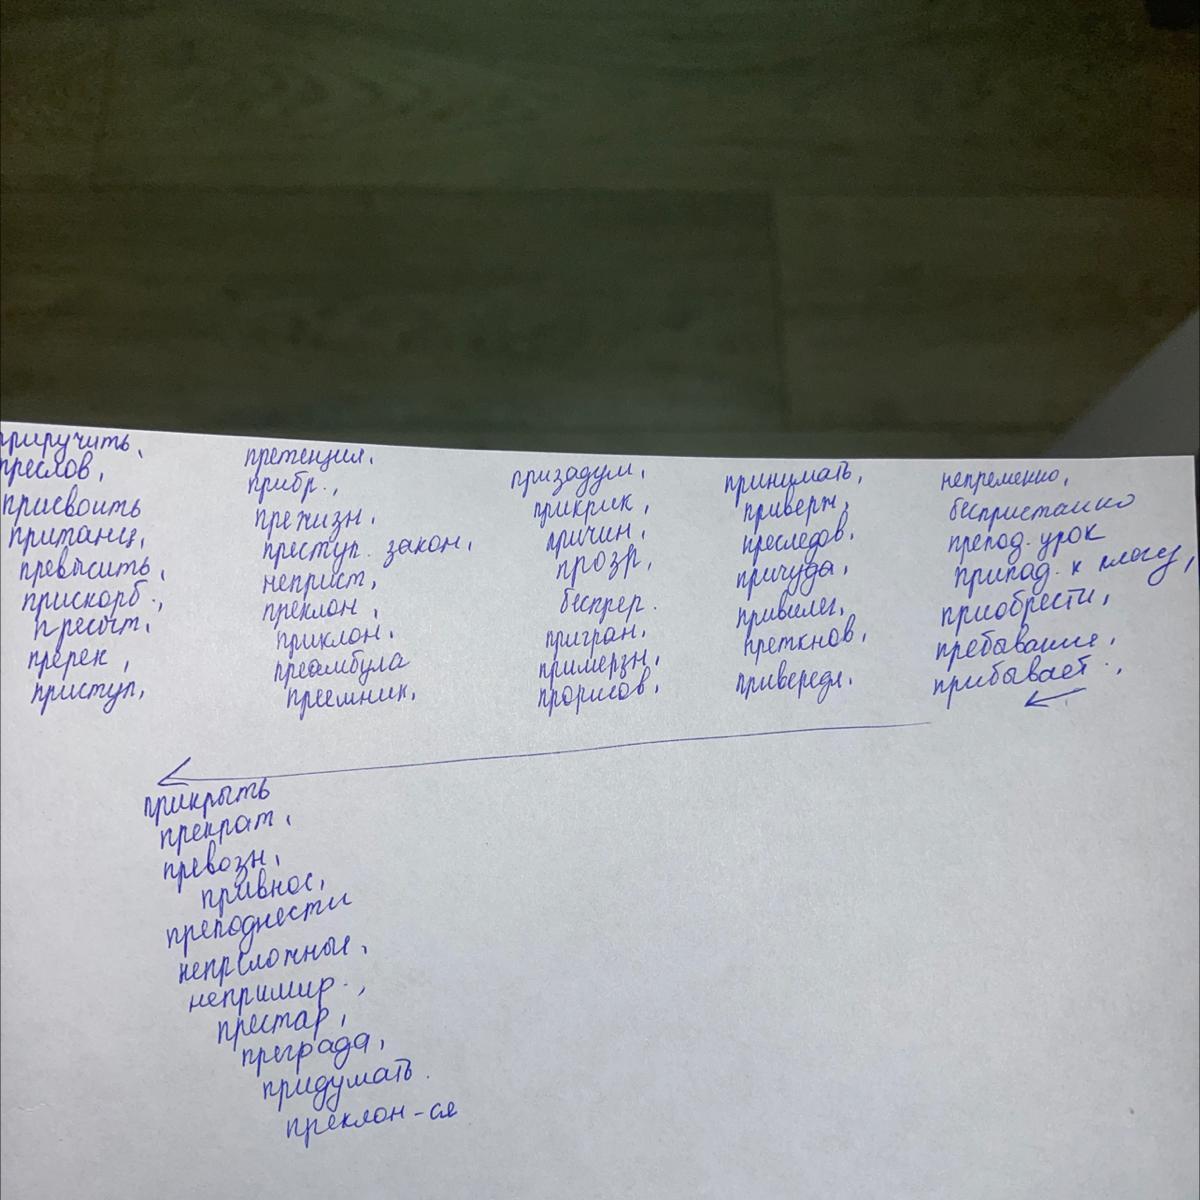 приручить,
преслов,
присвоить
пританц,
превысить,
прискорб.,
пресыт.
пререк,
приступ,
претенция.
прибр.,
прежизн.
преступ. закон.
неприст,
преклон,
приклон.
преамбула
преемник.
призадум,
прикрик,
причин.
прозр,
беспрер.
пригран.
примерзн.
прорисов.
принимать,
приверж,
преследов.
причуда,
привилег.
преткнов.
привередл.
непременно,
беспристанно
препод. урок
припад. к плечу,
приобрести,
пребывание,
прибывает.,
прикрыть
прекрат.
превозн,
привнос,
преподнести
непреложные,
непримир.,
престар,
преграда,
придумать.
преклон-ся